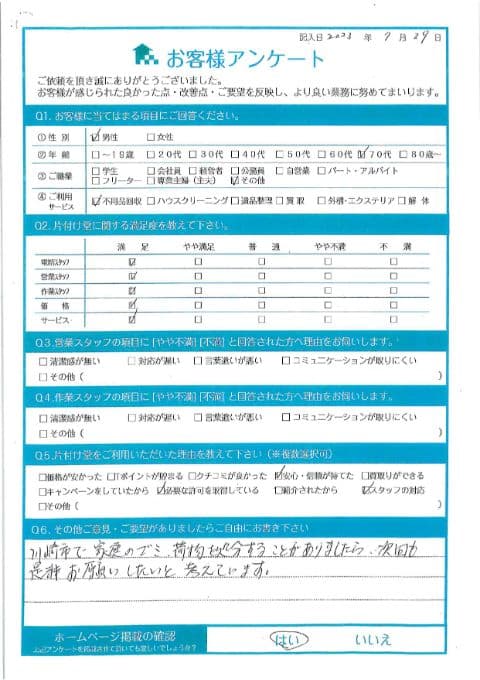 記入日 2023 年 9 月 29 日
お客様アンケート
ご依頼を頂き誠にありがとうございました。
お客様が感じられた良かった点・改善点・ご要望を反映し、より良い業務に努めてまいります。
Q1. お客様に当てはまる項目にご回答ください。
①性 別 ☑男性 □女性
②年 齢 □～19歳 □20代 □30代 □40代 □50代 □60代 ☑70代 □80歳～
③ご職業 □学生 □会社員 □経営者 □公務員 □自営業 □パート・アルバイト
□フリーター □専業主婦(主夫) ☑その他
④ご利用サービス ☑不用品回収 □ハウスクリーニング □遺品整理 □買取 □外構・エクステリア □解体
Q2. 片付け堂に関する満足度を教えて下さい。
満 足 やや満足 普 通 やや不満 不 満
電話スタッフ ☑ □ □ □ □
営業スタッフ ☑ □ □ □ □
作業スタッフ ☑ □ □ □ □
価 格 ☑ □ □ □ □
サービス ☑ □ □ □ □
Q3.営業スタッフの項目に[やや不満][不満]と回答された方へ理由をお伺いします。
□清潔感が無い □対応が遅い □言葉遣いが悪い □コミュニケーションが取りにくい
□その他( )
Q4.作業スタッフの項目に[やや不満][不満]と回答された方へ理由をお伺いします。
□清潔感が無い □対応が遅い □言葉遣いが悪い □コミュニケーションが取りにくい
□その他( )
Q5.片付け堂をご利用いただいた理由を教えて下さい(※複数選択可)
□価格が安かった □Tポイントが貯まる □クチコミが良かった ☑安心・信頼が持てた □買取りができる
□キャンペーンをしていたから ☑必要な許可を取得している □紹介されたから ☑スタッフの対応
□その他( )
Q6. その他ご意見・ご要望がありましたらご自由にお書き下さい
川崎市で家庭のゴミ、荷物処分することがありましたら、次回も
是非お願いしたいと考えています。
ホームページ掲載の確認 はい いいえ
上記アンケートを掲載させて頂いても宜しいでしょうか?